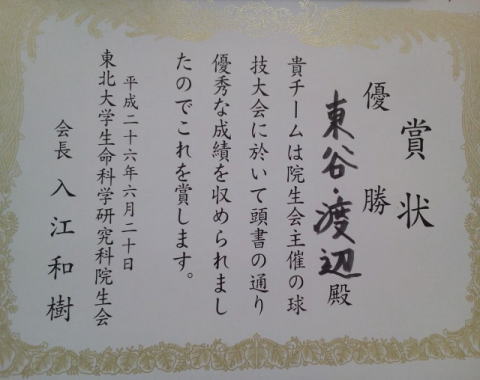 賞状
優勝
東谷・渡辺殿
貴チームは院生会主催の球
技大会に於いて頭書の通り
優秀な成績を収められまし
たのでこれを賞します。
平成二十六年六月二十日
東北大学生命科学研究科院生会
会長 入江和樹